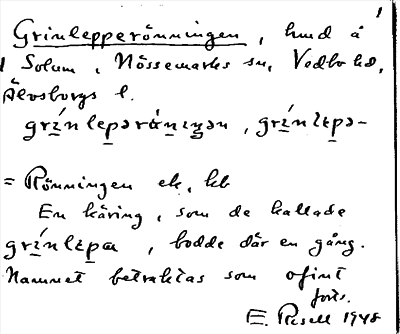 1
Grinlepperönningen, hmd å
Solum, Nössemarks sn, Vedbo hd,
Älvsborgs l.
grí̱nlep̱ərά̱nɩŋən, grí̱nlɛp̱ə-
= Rönningen ek. kb
En käring, som de kallade
grí̱nlɛp̱a, bodde där en gång.
Namnet betraktas som ofint
forts.
E. Rosell 1948